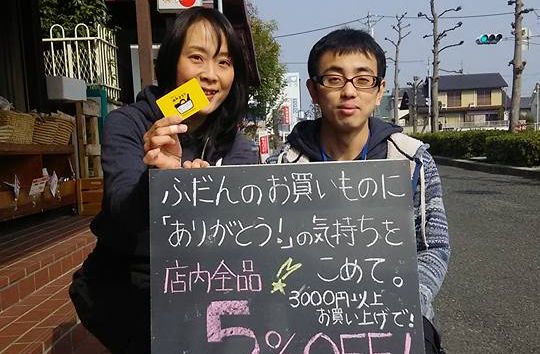 ふだんのお買いものに
「ありがとう!」の気持ちを
こめて。
店内全品
3000円以上
お買い上げで!
5%OFF!